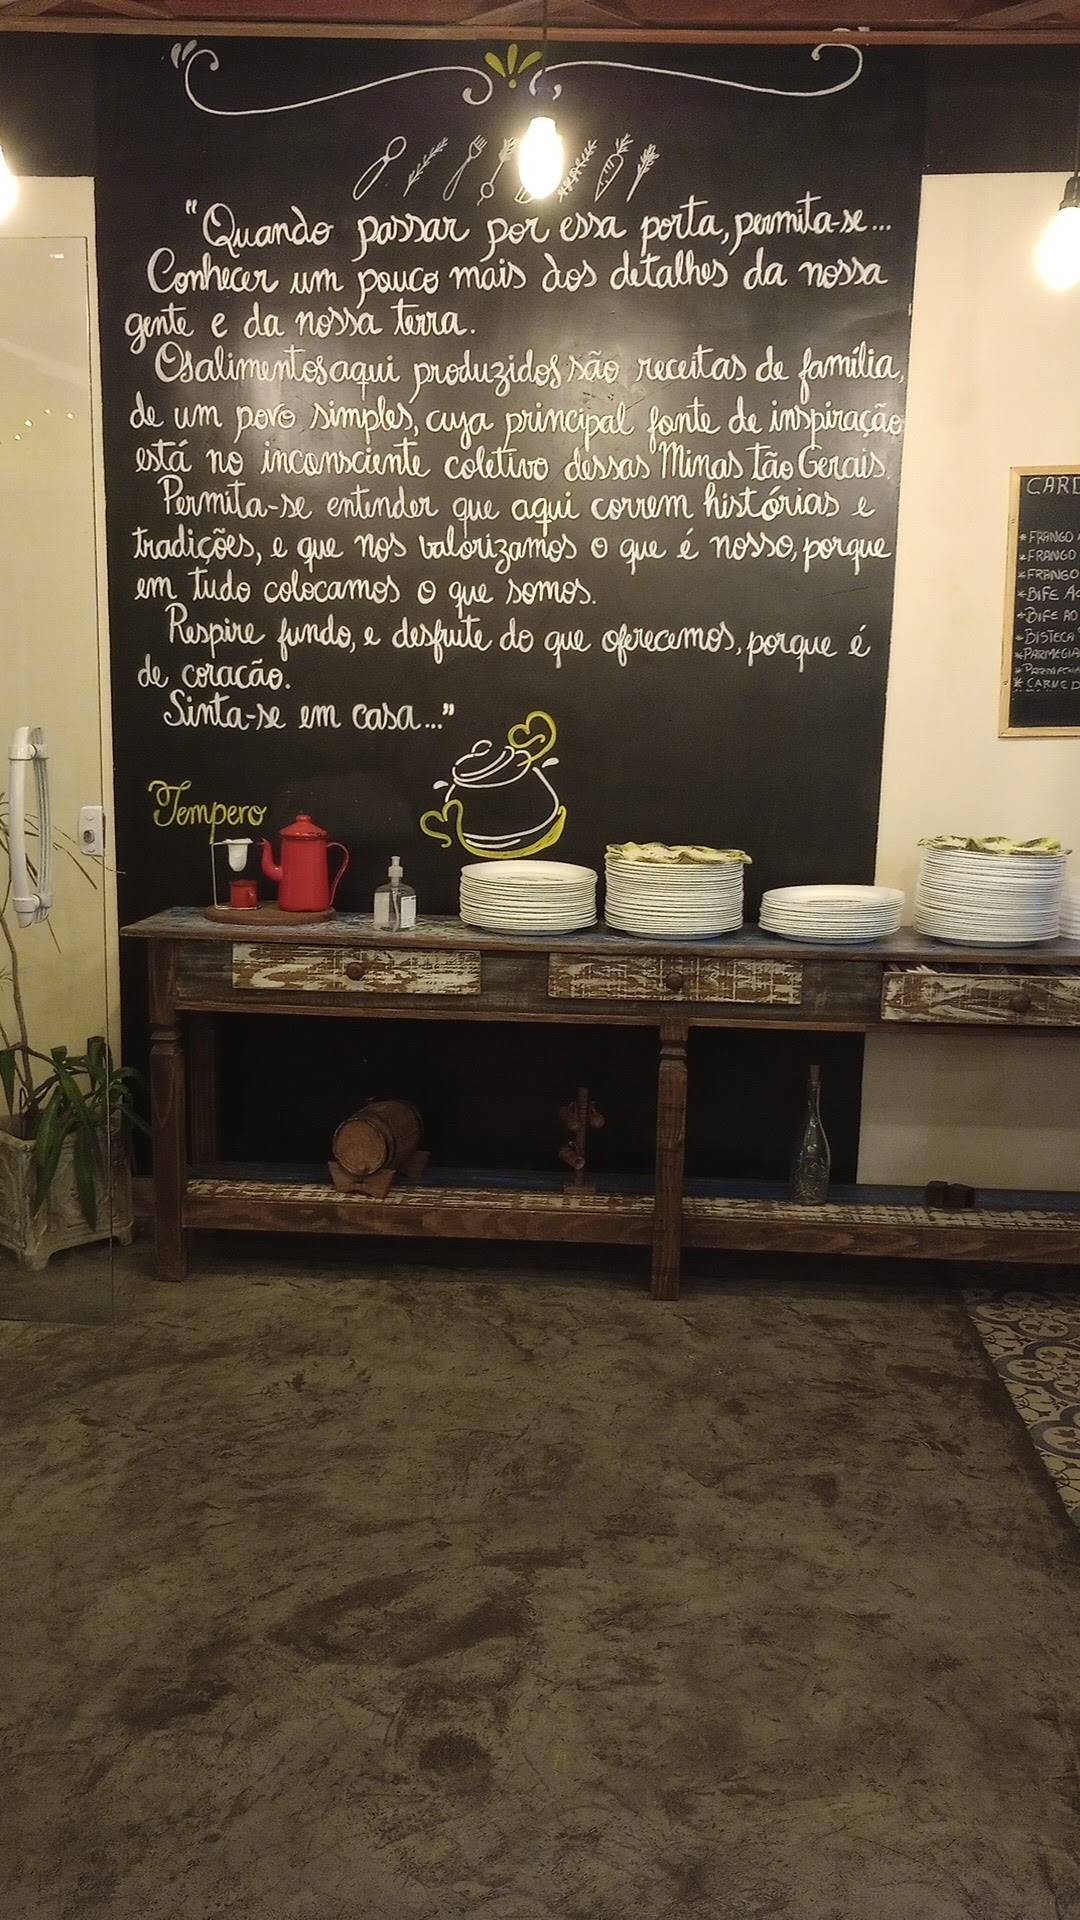 "Quando passar por essa porta, permita-se...
Conhecer um pouco mais dos detalhes da nossa
gente e da nossa terra.
Os alimentos aqui produzidos são receitas de família,
de um povo simples, cuja principal fonte de inspiração
está no inconsciente coletivo dessas Minas tão Gerais.
Permita-se entender que aqui correm histórias e
tradições, e que nos valorizamos o que é nosso, porque
em tudo colocamos o que somos.
Respire fundo, e desfrute do que oferecemos, porque é
de coracão.
Sinta-se em casa..."
Tempero
CARD
*FRANGO A
*FRANGO
*FRANGO
*BIFE AC
*BIFE AO
*BISTECA
*PARMEGIA
*CARNE D